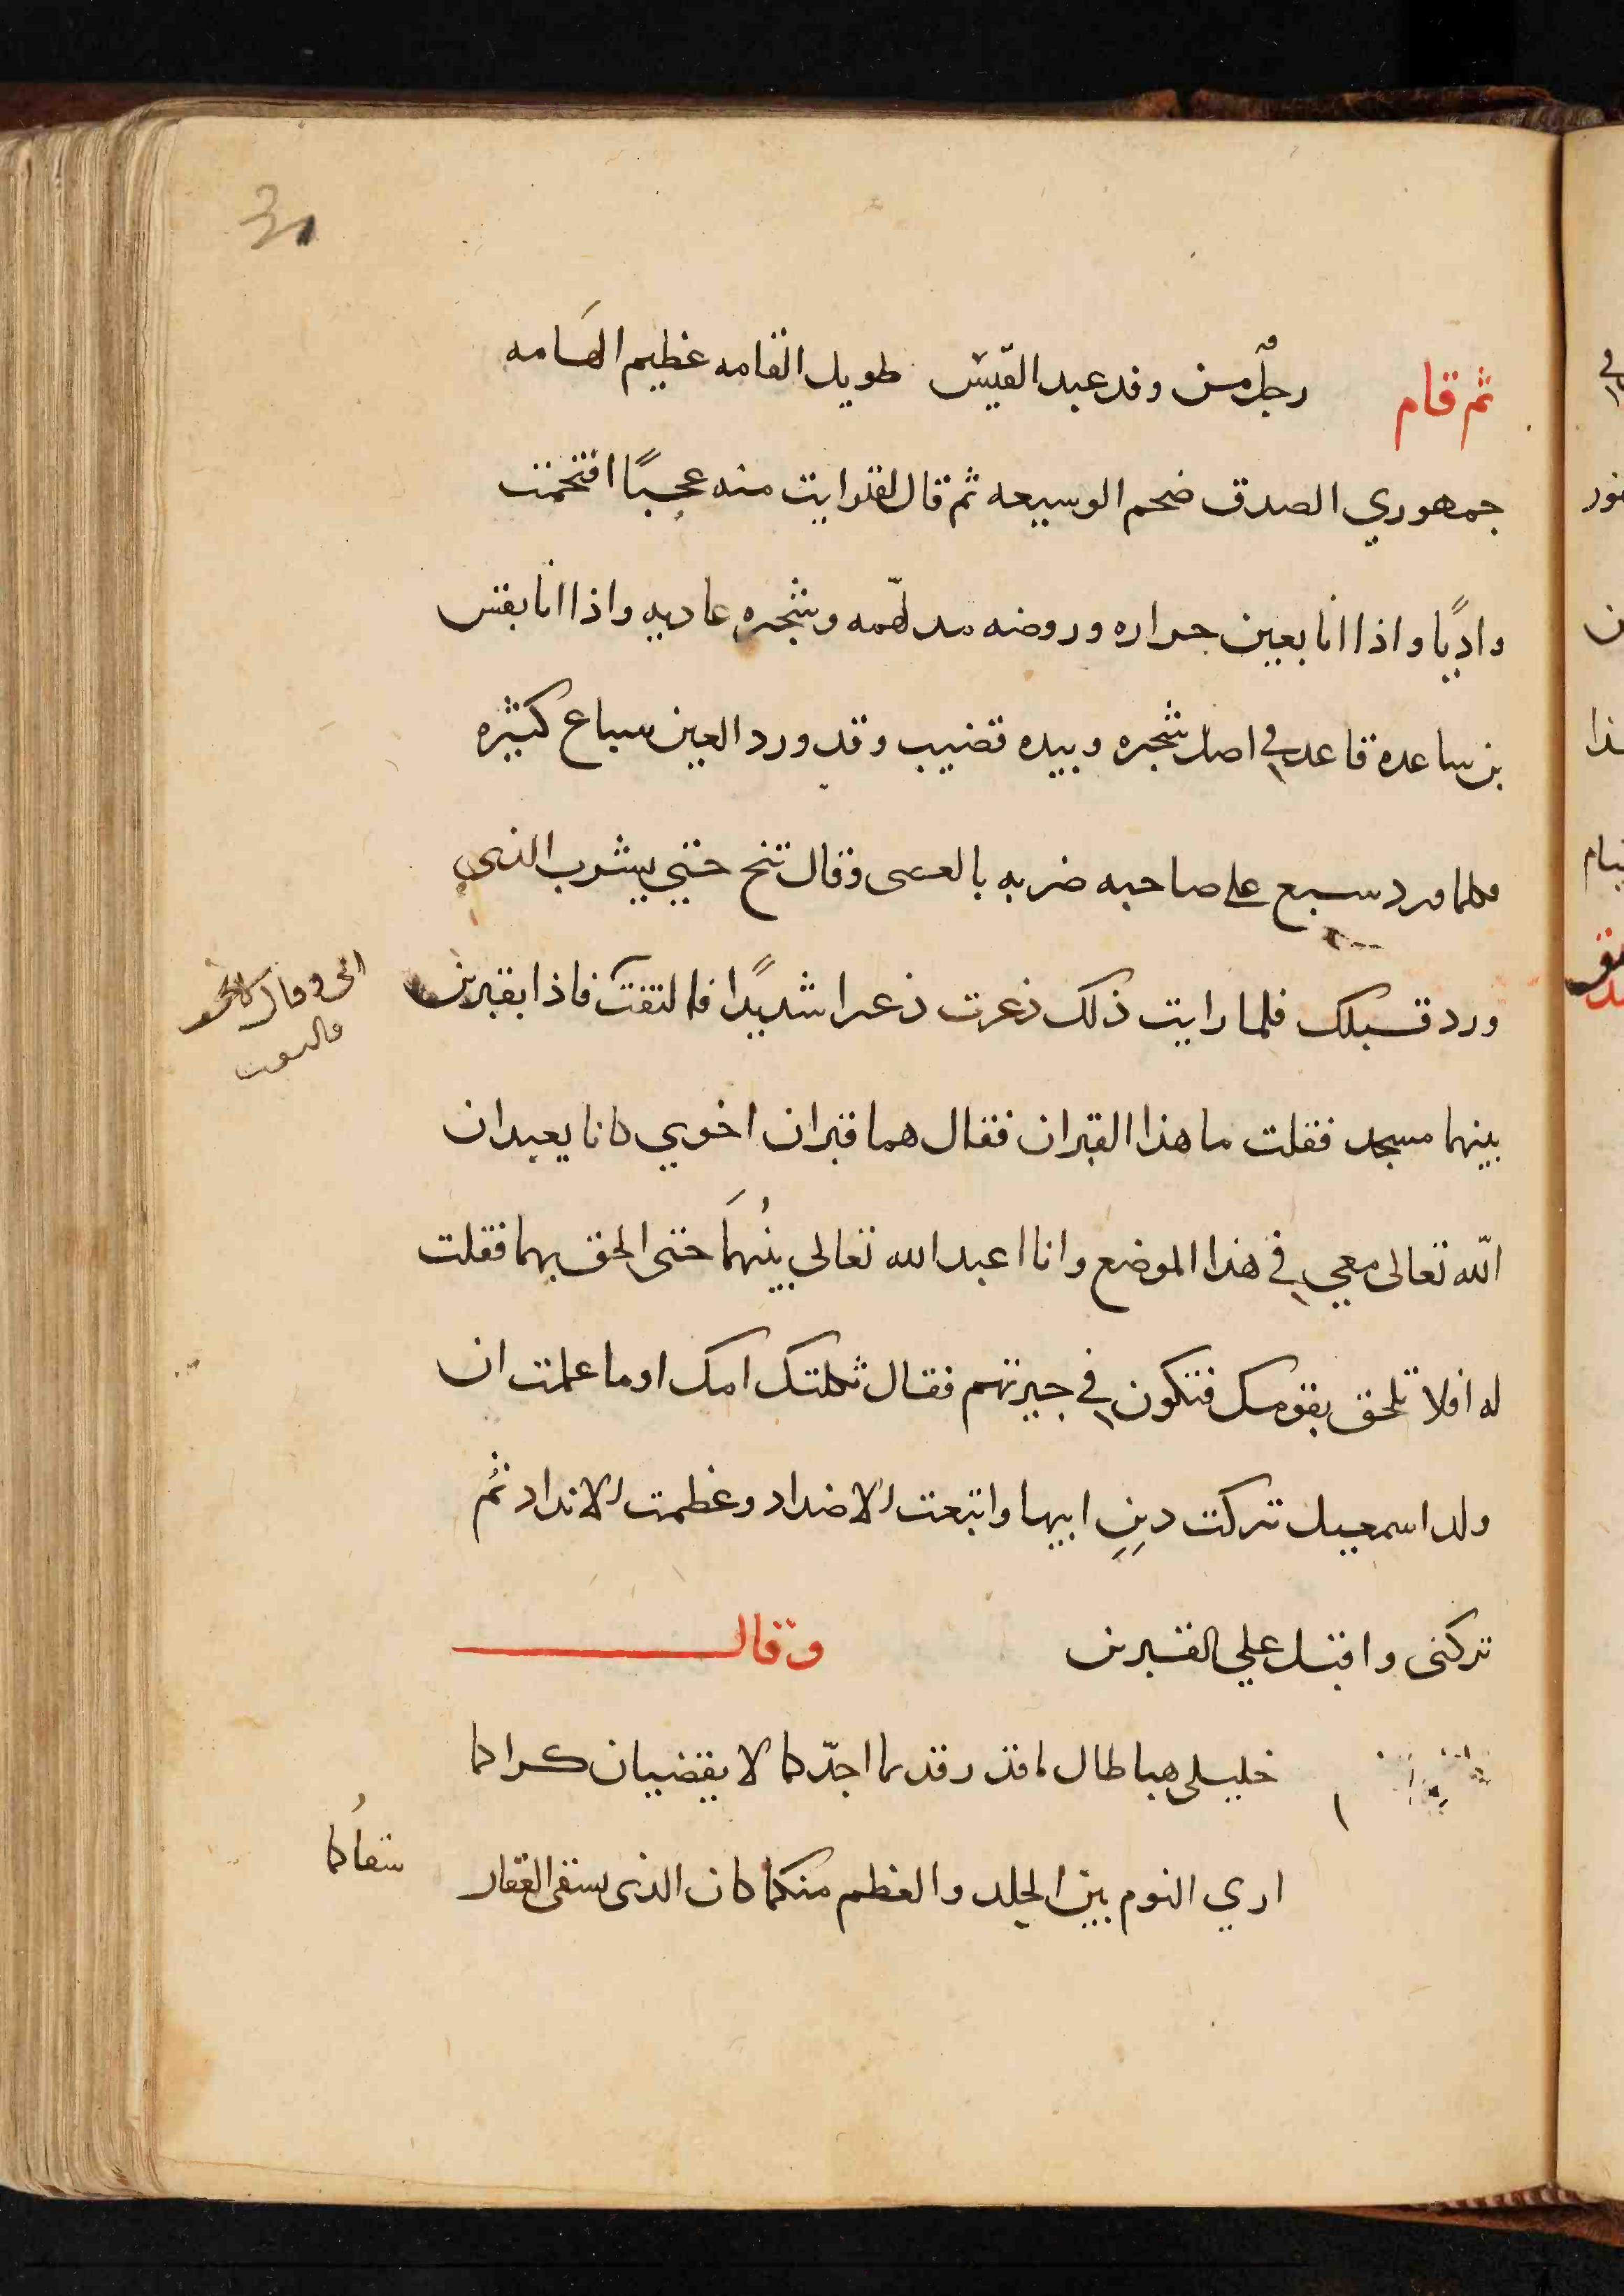 ثم قام رجلٌ من وفد عبد القيس طويل القامه عظيم الهامه
جمهوري الصدق ضخم الوسيعه ثم قال لقد رايت منه عجبًا اقتحمت
واديًا واذا انا بعين حراره وروضه مدلهمّه وشجره عاديه واذا انا بقس
بن ساعده قاعد في اصل شجره وبيده قضيب وقد ورد العين سباع كثيره
فكلما ورد سبع على صاحبه ضربه بالعصى وقال تنح حتي يشرب الذي
ورد قبلك فلما رايت ذلك ذعرت ذعرا شديدًا فالتفت فاذا بقبرين
بينهما مسجد فقلت ما هذا القبران فقال هما قبران اخوي كانا يعبدان
الله تعالى معي في هذا الموضع وانا اعبد الله تعالى بينهما حتى الحق بهما فقلت
له افلا تلحق بقومك فتكون في جيرتهم فقال ثكلتك امك اوما علمت ان
ولد اسمعيل تركت دين ابيها واتبعت الاضداد وعظمت الانداد ثم
تركنى واقبل علي القبرين وقال
خليلى هبا طال ما قد رقدتما اجدّكما لا يقضيان كراكما
اري النوم بين الجلد والعظم منكما كان الذى يسقى العقار سقاكما